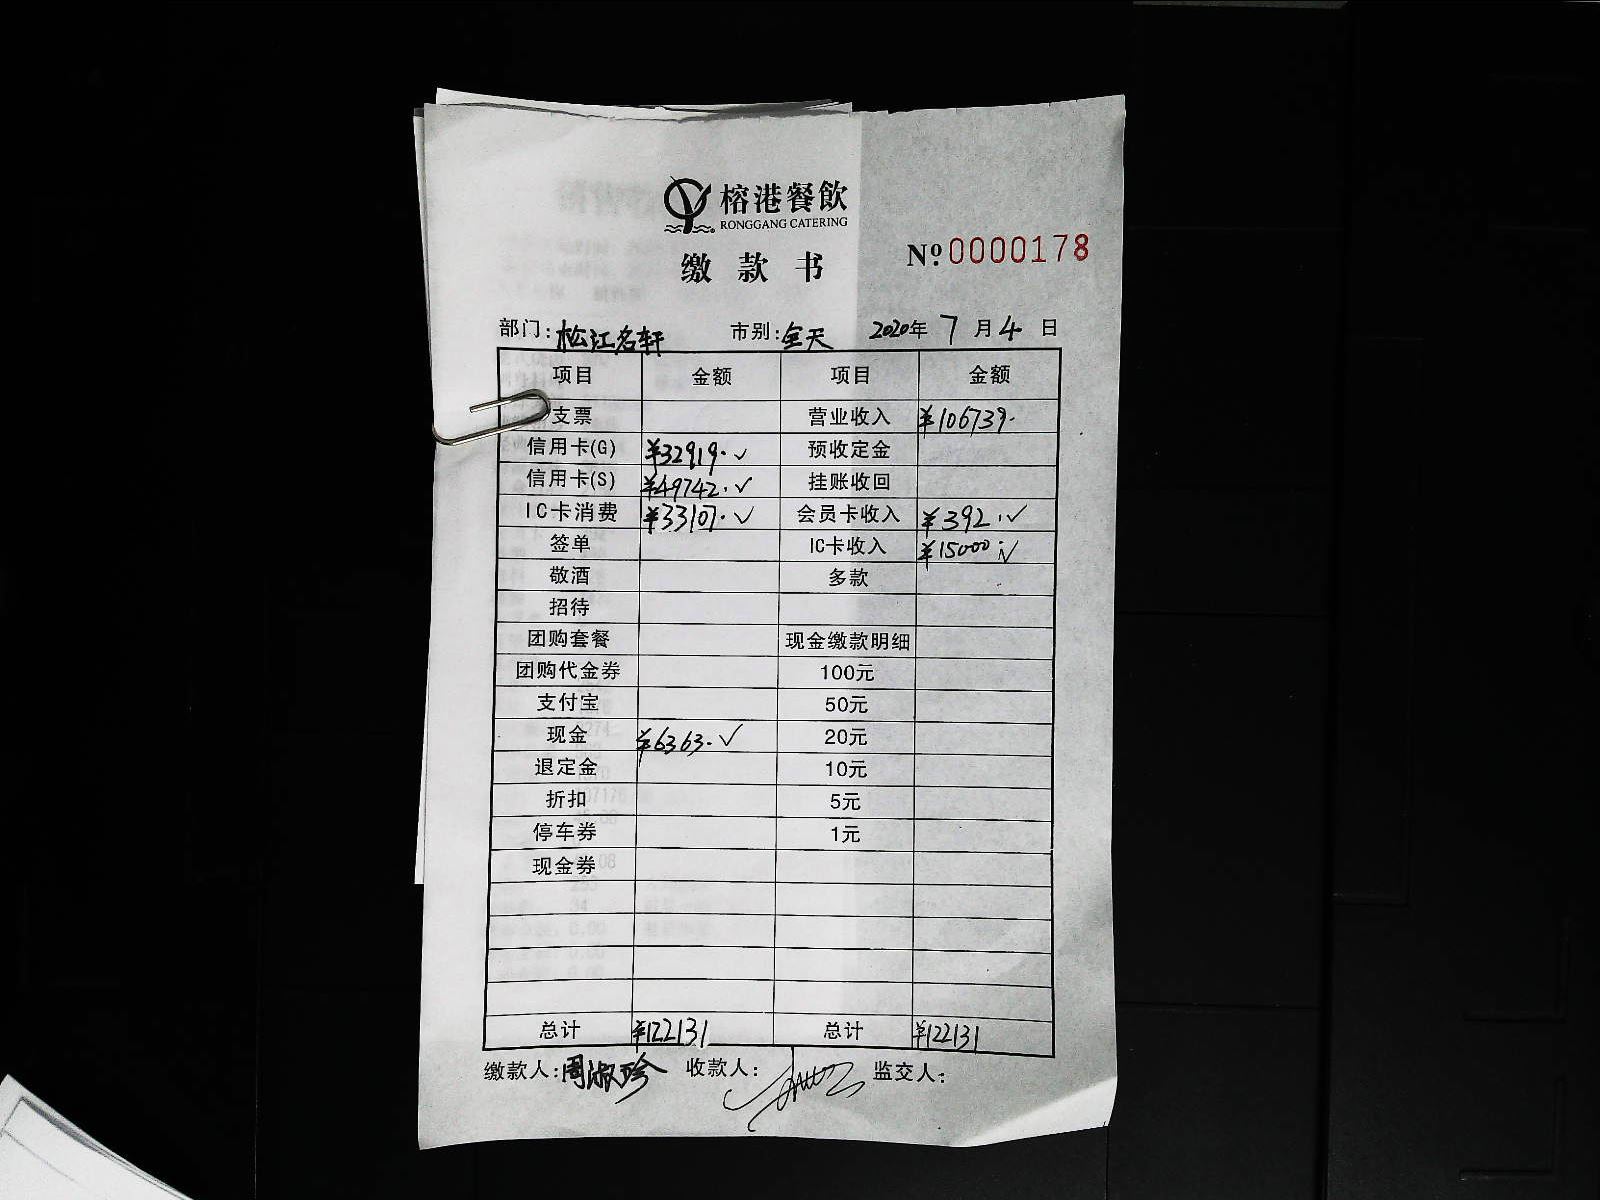 榕港餐飲
RONGGANG CATERING
缴款书
№ 0000178
部门: 松江名轩 市别: 全天 2020年 7 月 4 日
项目 金额 项目 金额
支票 营业收入 ¥106739.
信用卡(G) ¥32919. ✓ 预收定金
信用卡(S) ¥49742. ✓ 挂账收回
IC卡消费 ¥33107. ✓ 会员卡收入 ¥392. ✓
签单 IC卡收入 ¥15000. ✓
敬酒 多款
招待
团购套餐 现金缴款明细
团购代金券 100元
支付宝 50元
现金 ¥6363. ✓ 20元
退定金 10元
折扣 5元
停车券 1元
现金券
总计 ¥122131 总计 ¥122131
缴款人: 周淑珍 收款人: 监交人: